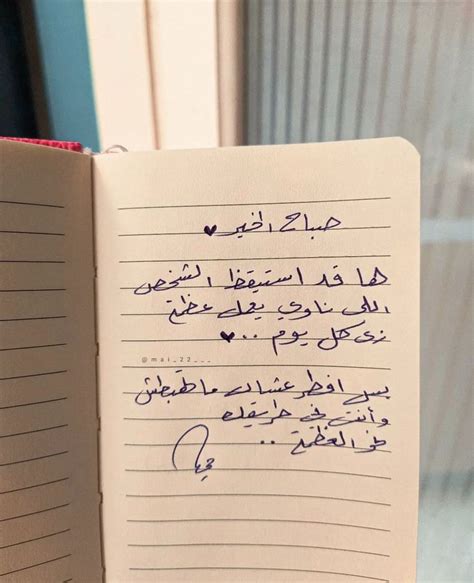 صباح الخير ♥
ها قد استيقظ الشخص
اللى ناوي يعمل عظمة
زى كل يوم .. ♥
@mai_22___
بس افطر عشان ما تهبطش
وأنت في طريقك
نحو العظمة ..